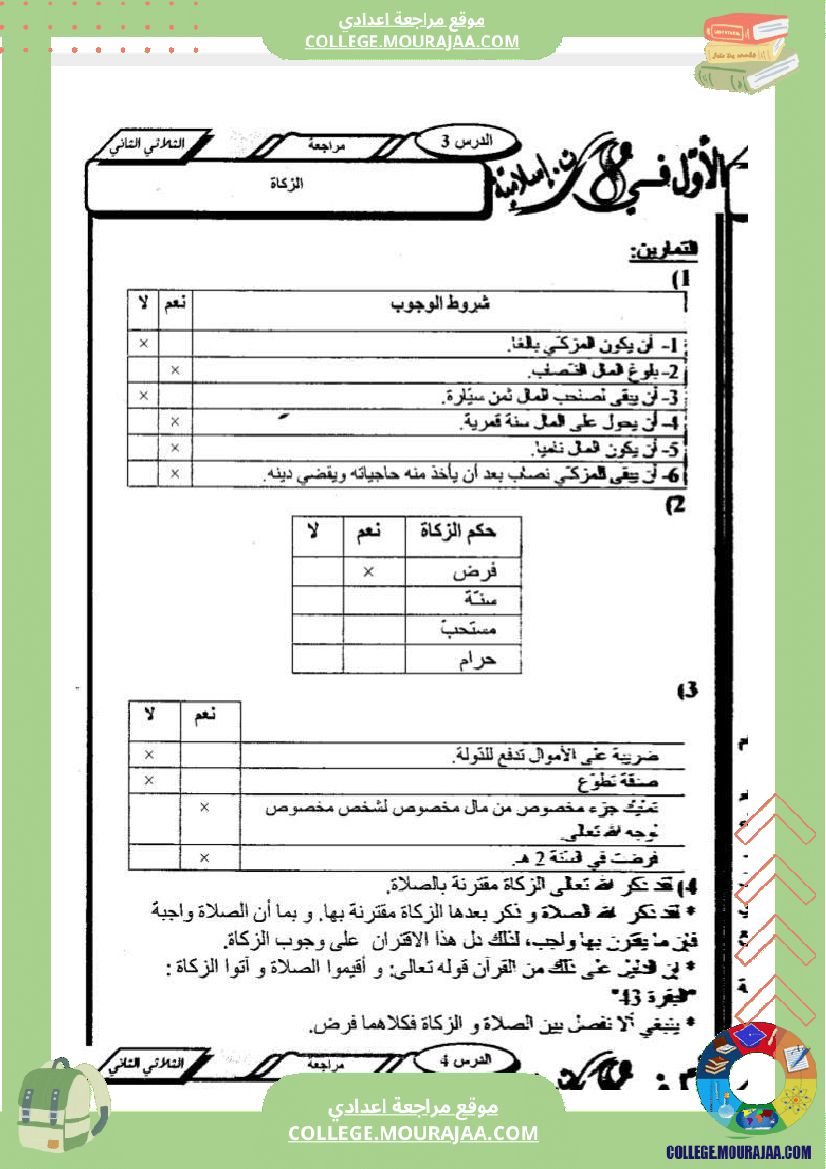 موقع مراجعة اعدادي
COLLEGE.MOURAJAA.COM
الأوّل في ت. إسلامية
الدرس 3
مراجعة
الثلاثي الثاني
الزكاة
التمارين:
1)
شروط الوجوب نعم لا
1- أن يكون المزكّي بالغا. ×
2- بلوغ المال النصاب. ×
3- أن يبقى لصاحب المال ثمن سيّارة. ×
4- أن يحول على المال سنة قمرية. ×
5- أن يكون المال ناميا. ×
6- أن يبقى المزكّي نصاب بعد أن يأخذ منه حاجياته ويقضي دينه. ×
2)
حكم الزكاة نعم لا
فرض ×
سنّة
مستحبّ
حرام
3)
نعم لا
ضريبة على الأموال تدفع للدّولة. ×
صدقة تطوّع ×
تمليك جزء مخصوص من مال مخصوص لشخص مخصوص ×
لوجه الله تعالى.
فرضت في السنة 2 هـ. ×
4) لقد ذكر الله تعالى الزكاة مقترنة بالصلاة.
* لقد ذكر الله الصلاة و ذكر بعدها الزكاة مقترنة بها. و بما أن الصلاة واجبة
فإن ما يقترن بها واجب، لذلك دل هذا الاقتران على وجوب الزكاة.
* إن الدليل على ذلك من القرآن قوله تعالى: و أقيموا الصلاة و آتوا الزكاة :
"البقرة 43"
* ينبغي ألا تفصل بين الصلاة و الزكاة فكلاهما فرض.
الدرس 4
مراجعة
الثلاثي الثاني
موقع مراجعة اعدادي
COLLEGE.MOURAJAA.COM
COLLEGE.MOURAJAA.COM